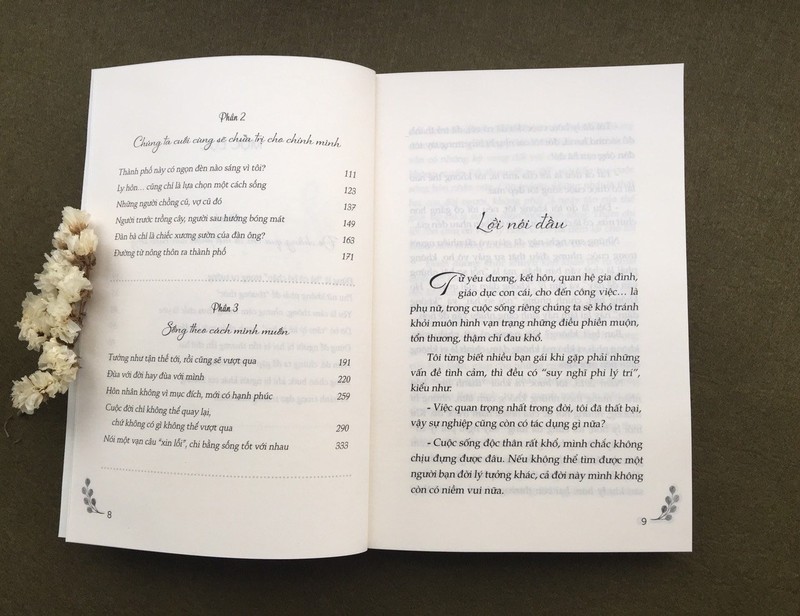 Phần 2
Chúng ta cuối cùng sẽ chữa trị cho chính mình
Thành phố này có ngọn đèn nào sáng vì tôi? 111
Ly hôn... cũng chỉ là lựa chọn một cách sống 123
Những người chồng cũ, vợ cũ đó 137
Người trước trồng cây, người sau hưởng bóng mát 149
Đàn bà chỉ là chiếc xương sườn của đàn ông? 163
Đường từ nông thôn ra thành phố 171
Phần 3
Sống theo cách mình muốn
Tưởng như tận thế tới, rồi cũng sẽ vượt qua 191
Đùa với đời hay đùa với mình 220
Hôn nhân không vì mục đích, mới có hạnh phúc 259
Cuộc đời chỉ không thể quay lại,
chứ không có gì không thể vượt qua 290
Nói một vạn câu "xin lỗi", chi bằng sống tốt với nhau 333
8
Lời nói đầu
Từ yêu đương, kết hôn, quan hệ gia đình,
giáo dục con cái, cho đến công việc... là
phụ nữ, trong cuộc sống riêng chúng ta sẽ khó tránh
khỏi muôn hình vạn trạng những điều phiền muộn,
tổn thương, thậm chí đau khổ.
Tôi từng biết nhiều bạn gái khi gặp phải những
vấn đề tình cảm, thì đều có "suy nghĩ phi lý trí",
kiểu như:
- Việc quan trọng nhất trong đời, tôi đã thất bại,
vậy sự nghiệp cũng còn có tác dụng gì nữa?
- Cuộc sống độc thân rất khổ, mình chắc không
chịu đựng được đâu. Nếu không thể tìm được một
người bạn đời lý tưởng khác, cả đời này mình không
còn có niềm vui nữa.
9